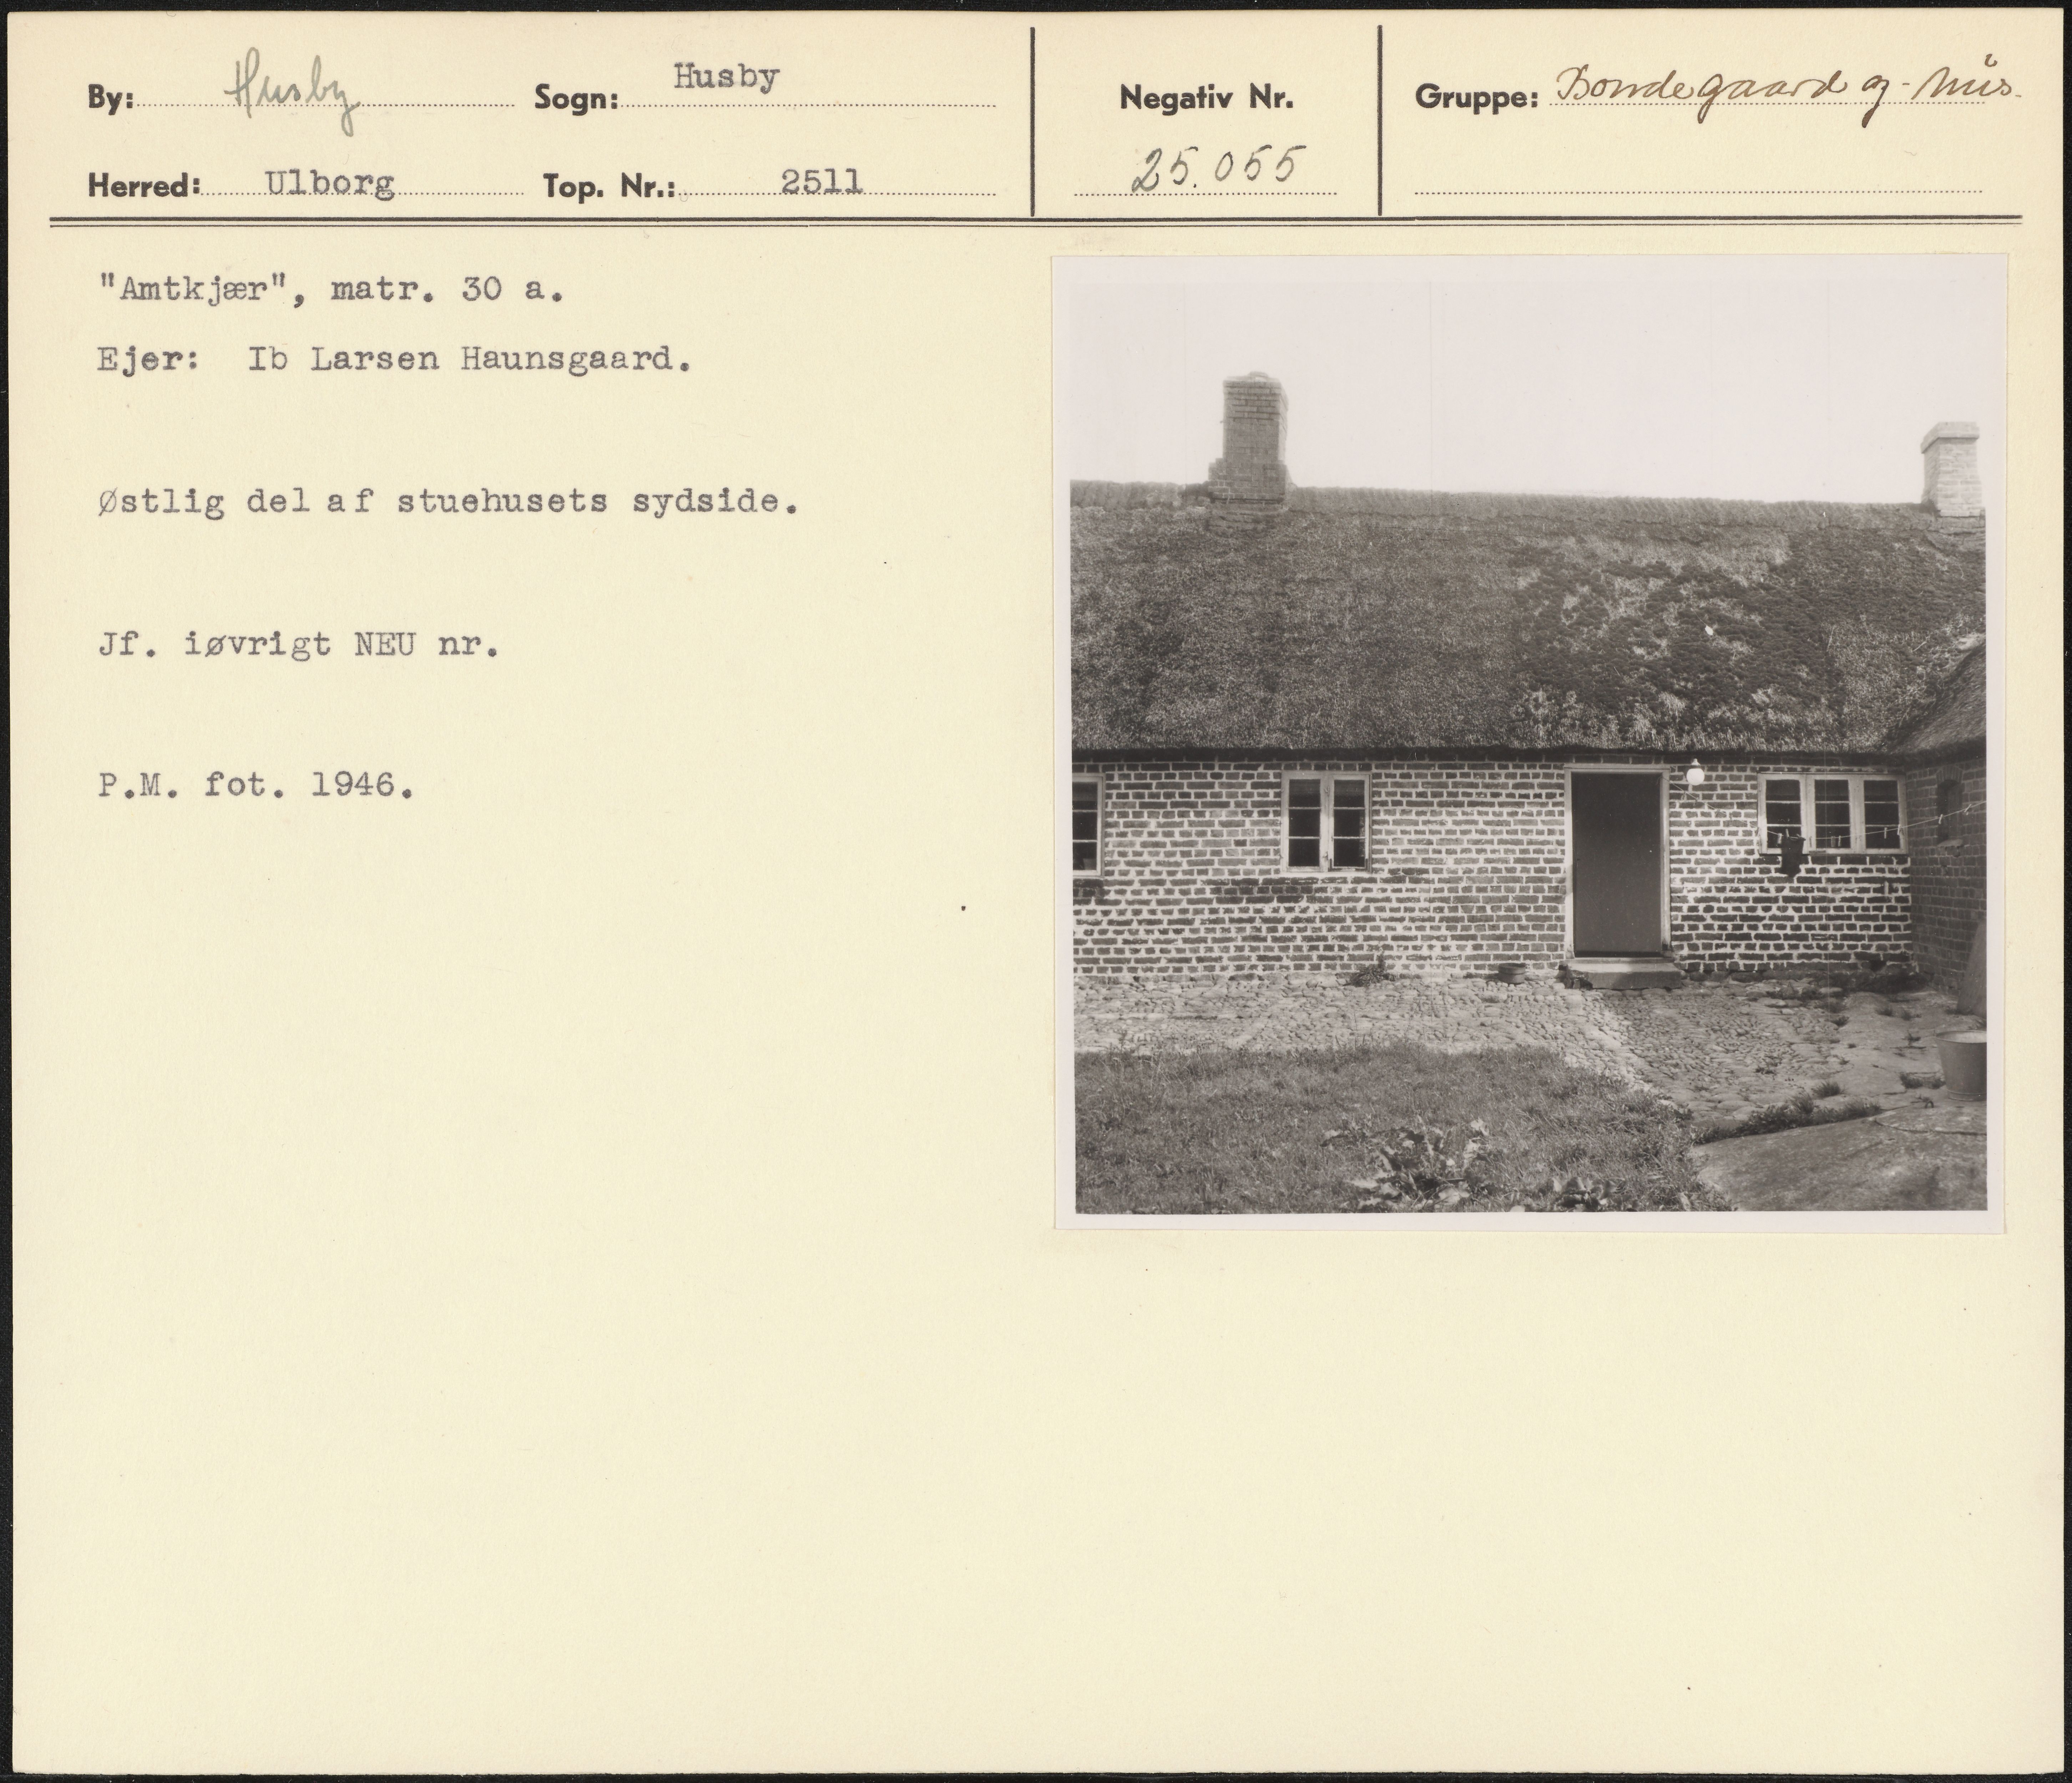 By: Husby Sogn: Husby
Negativ Nr.
Gruppe: Bondegaard og - hus.
Herred: Ulborg Top. Nr.: 2511
25.055
"Amtkjær", matr. 30 a.
Ejer: Ib Larsen Haunsgaard.
Østlig del af stuehusets sydside.
Jf. iøvrigt NEU nr.
P.M. fot. 1946.